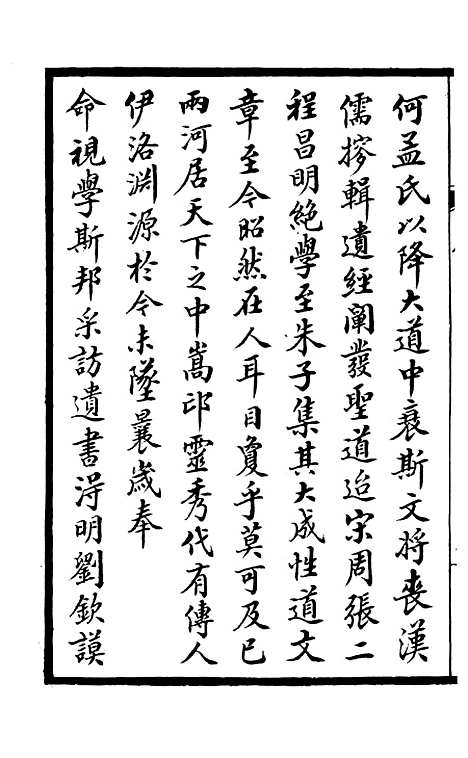 何孟氏以降大道中衰斯文將喪漢
儒摉輯遺經闡發聖道迨宋周張二
程昌明絶學至朱子集其大成性道文
章至今昭然在人耳目敻乎莫可及已
兩河居天下之中嵩邙靈秀代有傳人
伊洛淵源於今未墜曩歲奉
命視學斯邦采訪遺書淂明劉欽謨